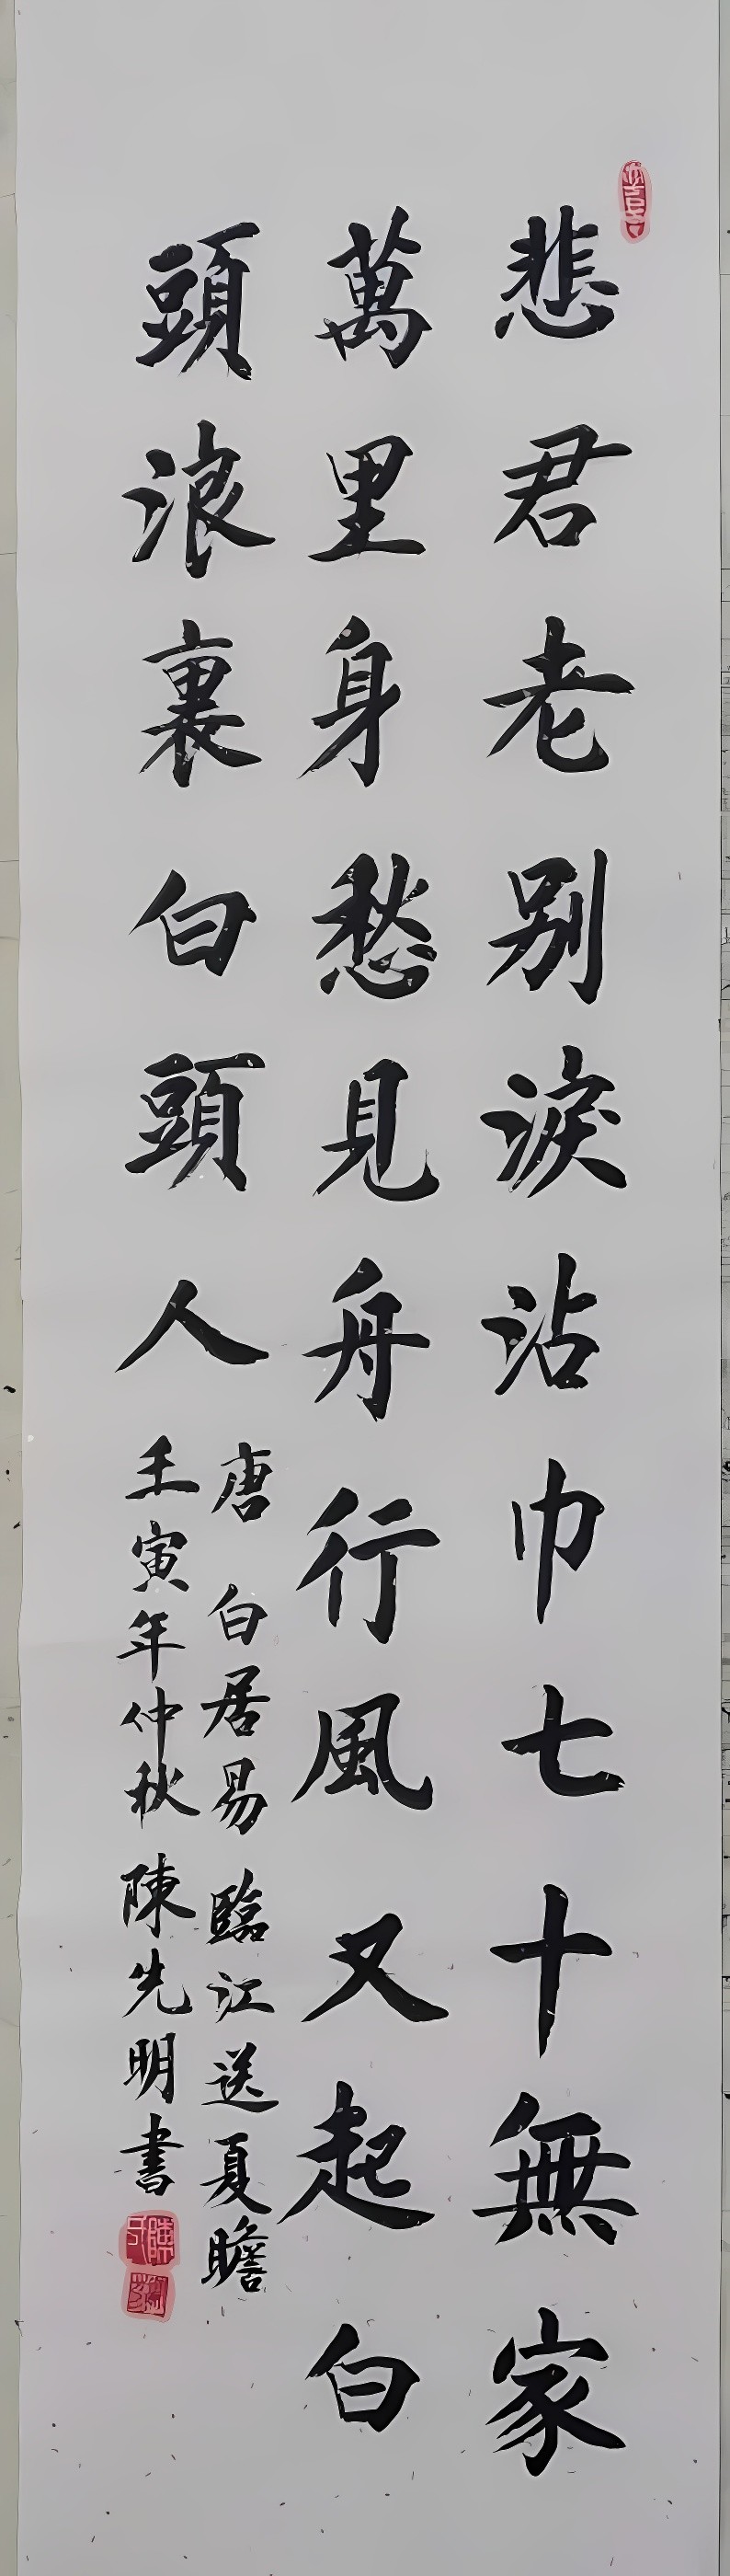 悲君老别淚沾巾七十無家
萬里身愁見舟行風又起白
頭浪裏白頭人
唐 白居易 臨江送夏瞻
壬寅年仲秋 陳先明書